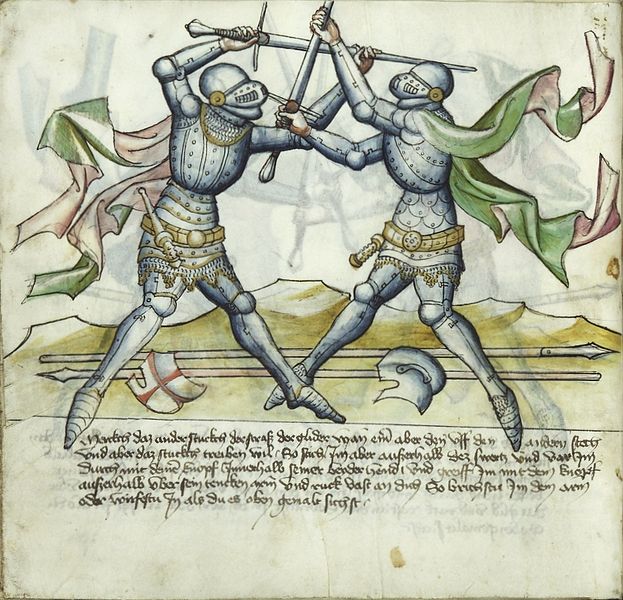 Merckch daz ander stuckch der straß der glider wan einer aber den uff den andern stett
Und aber daz stuckch treiben wil So stich Im aber ausserhalb dez swertz und var Im
Durch mit dem knopf Innerhalb seiner beider hend Und greiff Im mit dem knopff
ausserhalb Uber sein tencken arm Und ruck vast an dich So brichstu Im den arm
oder würffstu In als du es oben gemalt sichst